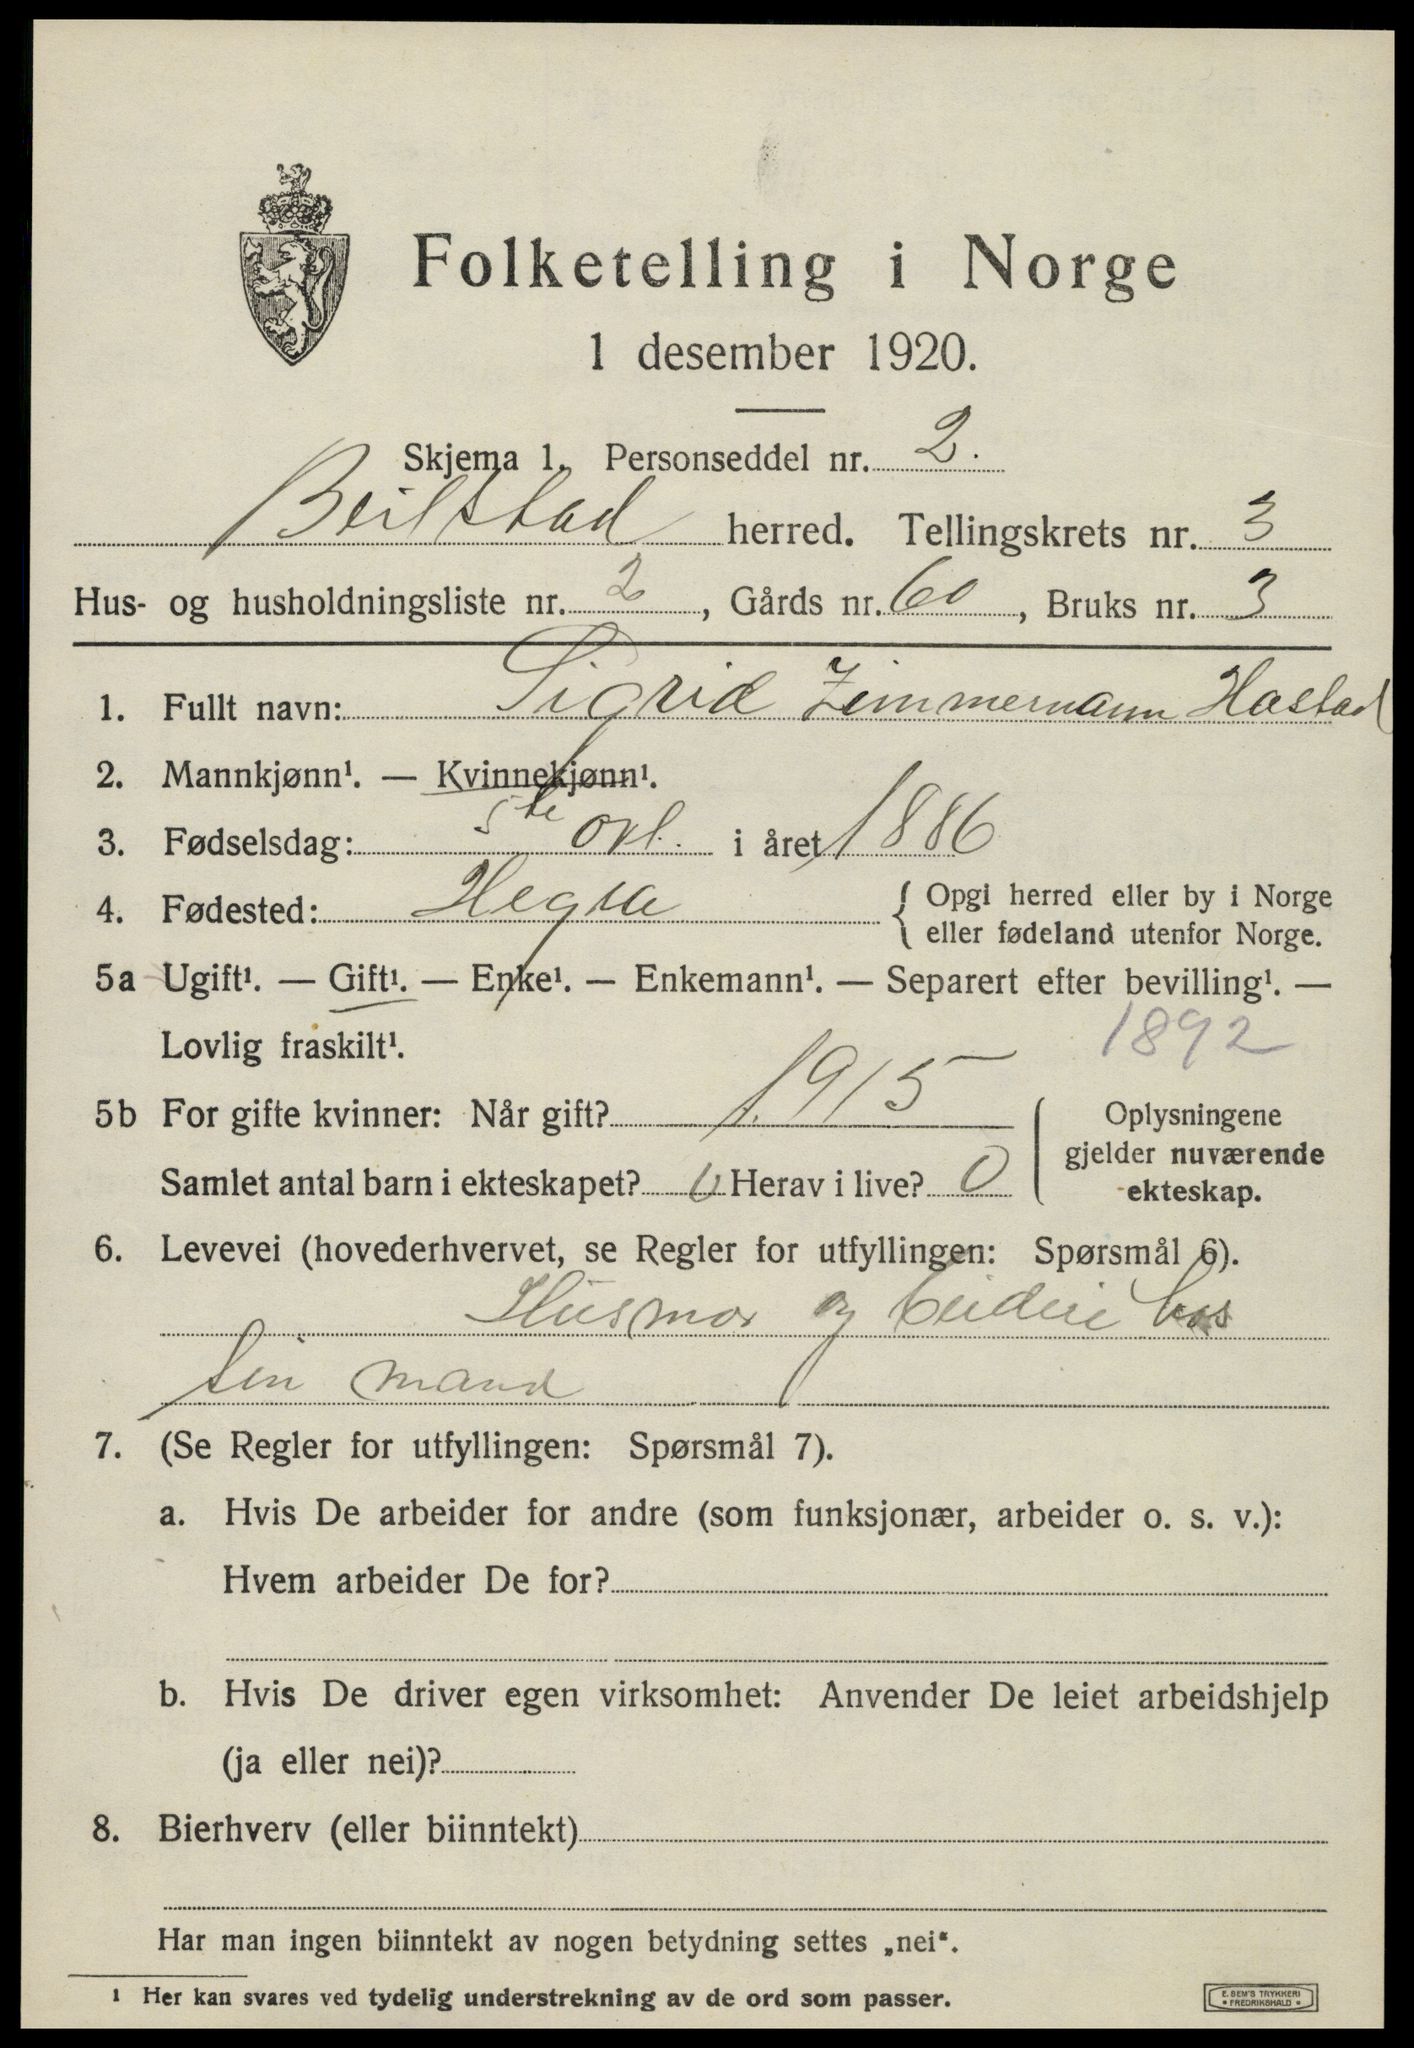 Folketelling i Norge
1 desember 1920.
Skjema 1. Personseddel nr. 2.
Beitstad herred. Tellingskrets nr. 3
Hus- og husholdningsliste nr. 2, Gårds nr. 60, Bruks nr. 3
1. Fullt navn: Sigrid Zimmermann Hastad
2. Mannkjønn¹. — Kvinnekjønn¹.
3. Fødselsdag: 5te i året 1886
4. Fødested: Hegra { Opgi herred eller by i Norge
eller fødeland utenfor Norge.
5a Ugift¹. — Gift¹. — Enke¹. — Enkemann¹. — Separert efter bevilling¹. —
Lovlig fraskilt¹.
1892
5b For gifte kvinner: Når gift? 1915
Samlet antal barn i ekteskapet? 0 Herav i live? 0
Oplysningene
gjelder nuværende
ekteskap.
6. Levevei (hovederhvervet, se Regler for utfyllingen: Spørsmål 6).
Husmor og hos
sin mand
7. (Se Regler for utfyllingen: Spørsmål 7).
a. Hvis De arbeider for andre (som funksjonær, arbeider o. s. v.):
Hvem arbeider De for?
b. Hvis De driver egen virksomhet: Anvender De leiet arbeidshjelp
(ja eller nei)?
8. Bierhverv (eller biinntekt)
Har man ingen biinntekt av nogen betydning settes „nei“.
¹ Her kan svares ved tydelig understrekning av de ord som passer.
E. SEM'S TRYKKERI
• FREDRIKSHALD •